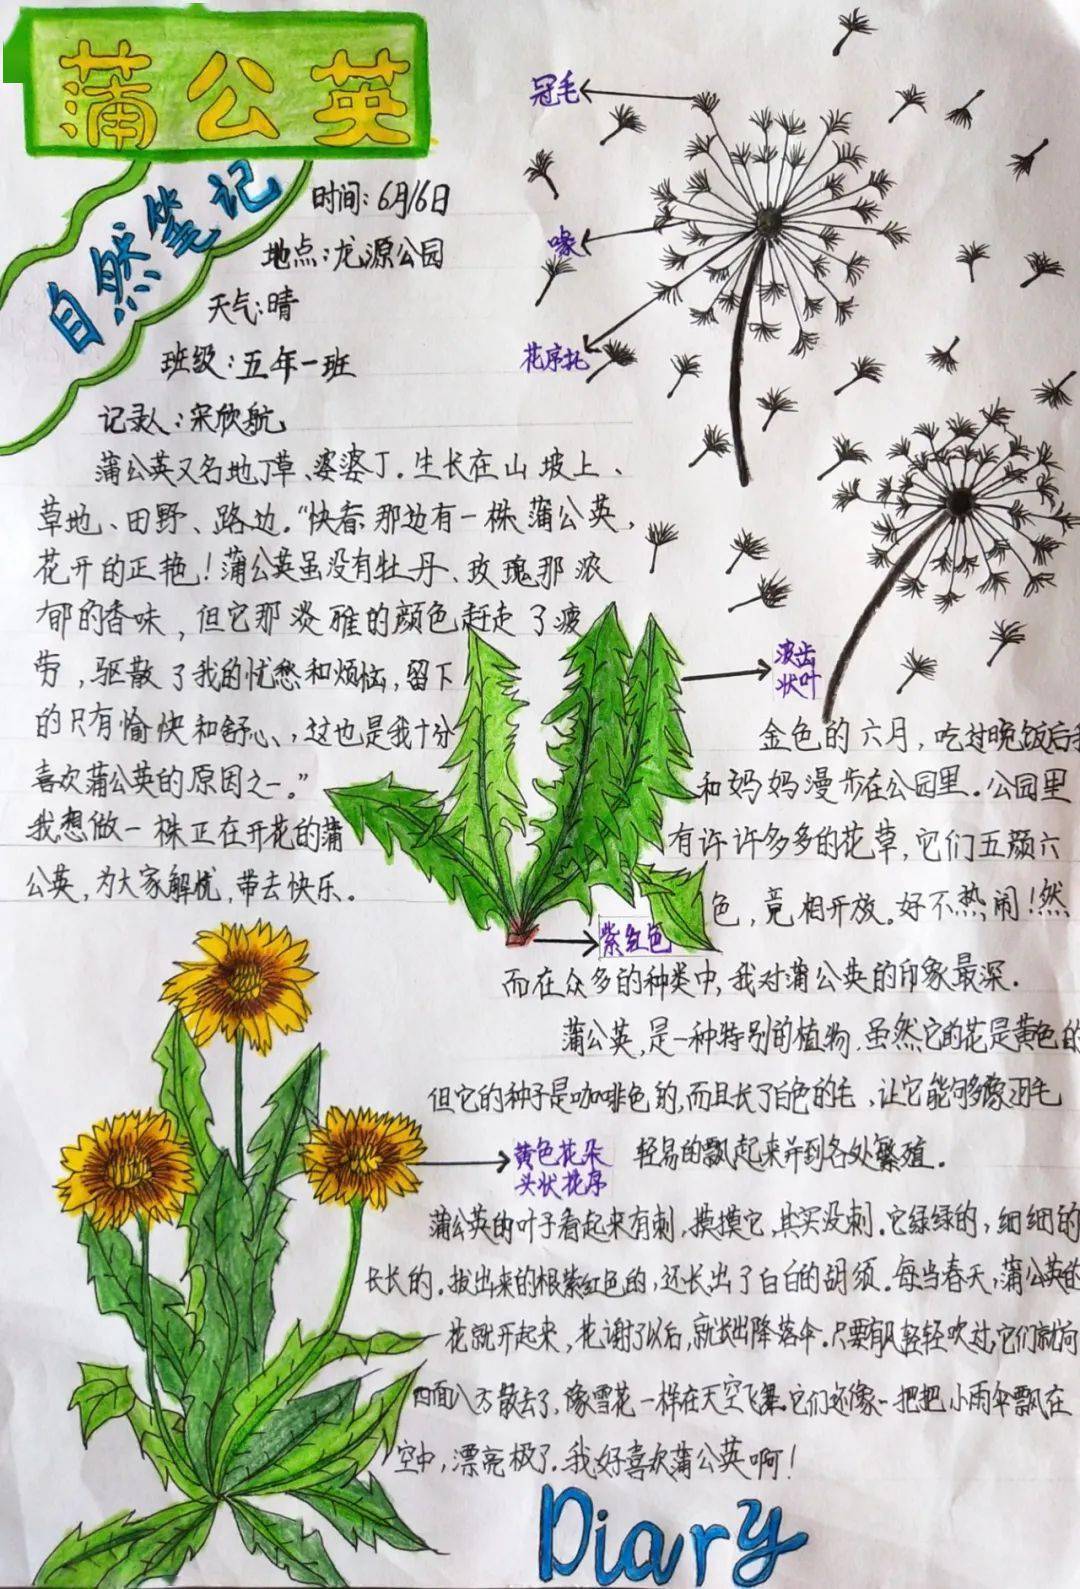 蒲公英
自然笔记
时间:6月16日
地点:龙源公园
天气:晴
班级:五年一班
记录人:宋欣航
冠毛
喙
花序托
蒲公英又名地丁草、婆婆丁.生长在山坡上、
草地、田野、路边."快看,那边有一株蒲公英,
花开的正艳!蒲公英虽没有牡丹、玫瑰那浓
郁的香味,但它那淡雅的颜色赶走了疲
劳,驱散了我的忧愁和烦恼,留下
的只有愉快和舒心,这也是我十分
喜欢蒲公英的原因之一。"
我想做一株正在开花的蒲
公英,为大家解忧,带去快乐。
波齿
状叶
紫红色
金色的六月,吃过晚饭后我
和妈妈漫步在公园里.公园里
有许许多多的花草,它们五颜六
色,竟相开放。好不热闹!然
而在众多的种类中,我对蒲公英的印象最深.
蒲公英,是一种特别的植物.虽然它的花是黄色的
但它的种子是咖啡色的,而且长了白色的毛,让它能够像羽毛
轻易的飘起来并到各处繁殖.
黄色花朵
头状花序
蒲公英的叶子看起来有刺,摸摸它,其实没刺.它绿绿的,细细的
长长的.拔出来的根紫红色的,还长出了白白的胡须.每当春天,蒲公英的
花就开起来,花谢了以后,就长出降落伞.只要有风轻轻吹过,它们就向
四面八方散去了,像雪花一样在天空飞舞.它们还像一把把小雨伞飘在
空中,漂亮极了.我好喜欢蒲公英啊!
Diary